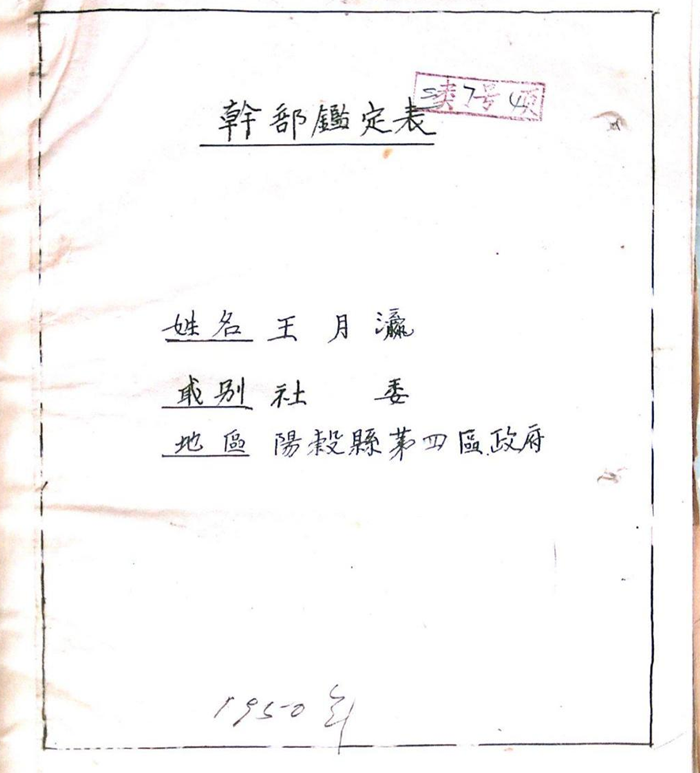 幹部鑑定表
类7号4项
姓名 王月瀛
职别 社委
地區 陽穀縣第四區政府
1950年